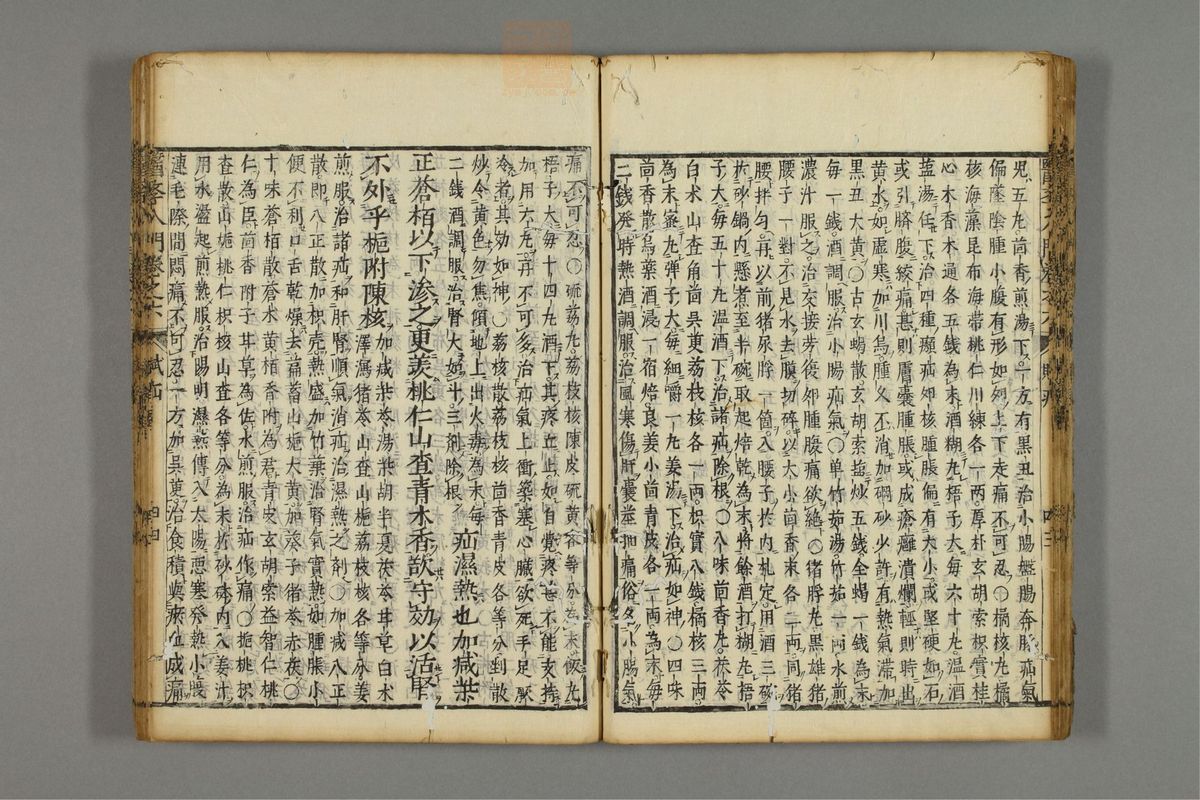 兒五九茴香煎湯下一方有黑丑治小腸盤腸奔豚疝氣
偏墜陰腫小腹有形如卵上下走痛不可忍〇橘核九橘
核海藻昆布海帶桃仁川練各一兩厚朴玄胡索枳實桂
心木香木通各五錢為末酒糊九梧子大每六十九温酒
盐湯任下治四種㿗疝卵核腫脹偏有大小或堅硬如石
或引臍腹絞痛甚則膚囊腫脹或成瘡癰潰爛輕則時出
黄水如虚寒加川烏腫久不消加硇砂少許有熱氣滯加
黑丑大黄〇古玄蝎散玄胡索盐炒五錢全蝎一錢為末
每一錢酒調服治小腸疝氣〇单竹茹湯竹茹一兩水煎
濃汁服之治交接劳復卵腫腹痛欲絶〇猪脬九黑雄猪
腰子一對不見水去膜切碎以大小茴香末各二兩同猪
腰拌匀再以前猪尿脬一箇入腰子於内札定用酒三碗
於砂鍋内懸煮至半碗取起焙乾為末將餘酒打糊九梧
子大每五十九温酒下治諸疝除根〇八味茴香九茯苓
白术山查角茴吳更荔枝核各一兩枳實八錢橘核三兩
為末蜜九弹子大每細嚼一九姜湯下治疝如神〇四味
茴香散烏藥酒浸一宿焙良姜小茴青皮各一兩為末每
二錢發時熱酒調服治風寒傷肝囊莖抽痛俗名小腸氣
痛不可忍〇硫荔九荔枝核陳皮硫黄各等分為末飯九
梧子大每十四九酒下其疼立止如自覺疼甚不能支持
加用六九再不可多治疝氣上衝築塞心臟欲死手足厥
冷者其効如神〇荔核散荔枝核茴香青皮各等分剉散
炒令黄色勿焦傾地上出火毒為末每
二錢酒調服治腎大如斗三劑除根 疝濕熱也加减柴
正蒼栢以下渗之更羨桃仁山查青木香飲守効以活腎
不外乎梔附陳核 〇加减柴苓湯柴胡半夏茯苓甘草白术
澤瀉猪苓山查山梔荔枝核各等分姜
煎服治諸疝和肝腎順氣消疝治濕熱之剤〇加减八正
散即八正散加枳壳熱盛加竹葉治腎氣實熱如腫脹小
便不利口舌乾燥去萹蓄山梔大黄加葵子猪苓赤茯〇
十味蒼栢散蒼术黄栢香附為君青皮玄胡索益智仁桃
仁為臣茴香附子甘草為佐水煎服治疝作痛〇梔桃枳
查散山梔桃仁枳核山查各等分為末於砂砵内入姜汁
用水盪起煎熱服治陽明濕熱傳入太陽惡寒發熱小腹
連毛際間悶痛不可忍一方加吳更治食積與瘀血成痛